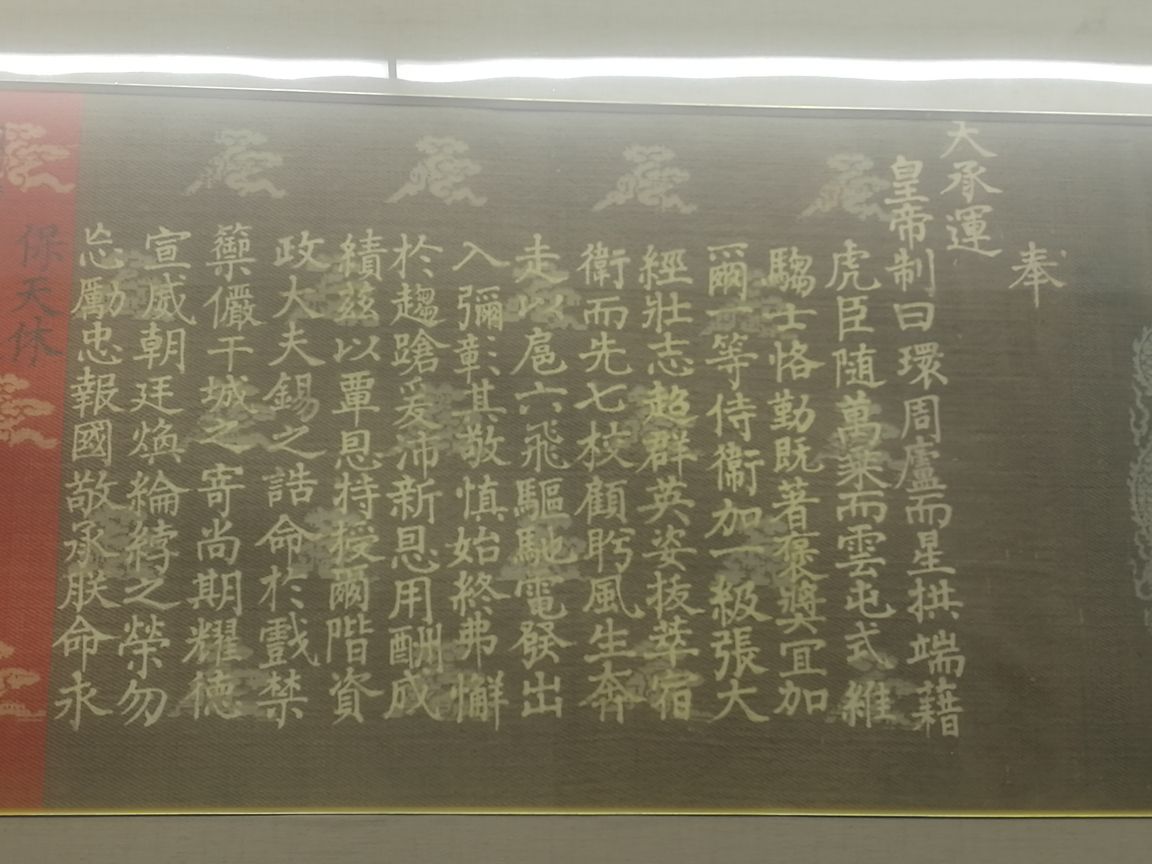 奉
天承運
皇帝制曰環周廬而星拱端藉
虎臣隨萬乘而雲屯式維
騶士恪勤既著褒獎宜加
爾一等侍衛加一級張大
經壯志超群英姿拔萃宿
衛而先七校顧盼風生奔
走以扈六飛驅馳電發出
入彌彰其敬慎始終弗懈
於趨蹌爰沛新恩用酬成
績茲以覃恩特授爾階資
政大夫錫之誥命於戲禁
籞儼干城之寄尚期耀德
宣威朝廷煥綸綍之榮勿
忘勵忠報國敬承朕命永
保天休